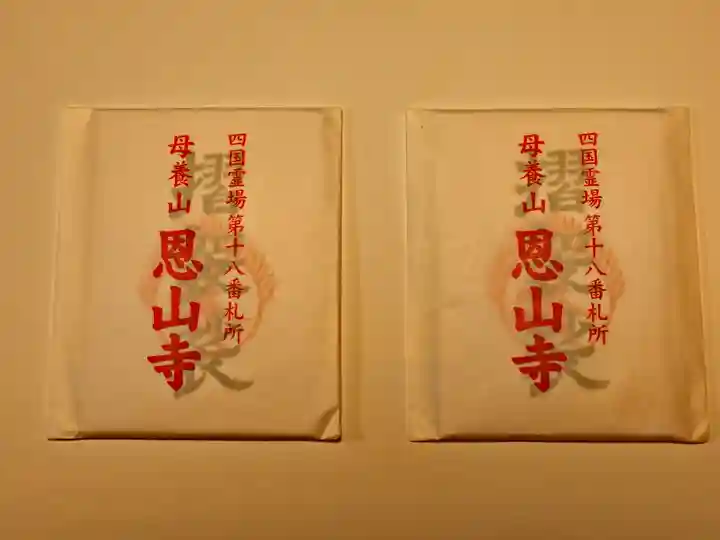 四国霊場第十八番札所
母養山恩山寺
四国霊場第十八番札所
母養山恩山寺